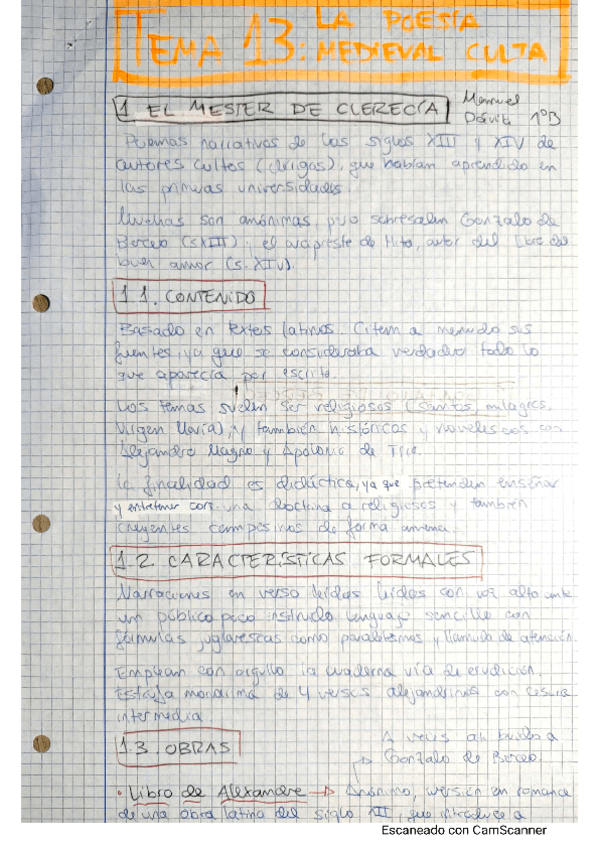 TEMA 13: LA POESÍA
MEDIEVAL CULTA
1 EL MESTER DE CLERECÍA
Manuel
Dávila 1ºB
Poemas narrativos de los siglos XIII y XIV de
autores cultos (clérigos), que habían aprendido en
las primeras universidades.
Muchas son anónimas, pero sobresalen Gonzalo de
Berceo (s XIII) y el arcipreste de Hita, autor del libro del
buen amor (s. XIV).
1.1. CONTENIDO
Basado en textos latinos. Citan a menudo sus
fuentes, ya que se consideraba verdadero todo lo
que aparecía por escrito.
Los temas suelen ser religiosos (santos, milagros,
Virgen María), y también históricos y novelescos con
Alejandro Magno y Apolonio de Tiro.
La finalidad es didáctica, ya que pretenden enseñar
y entretener con una doctrina a religiosos y también
creyentes campesinos de forma amena.
1.2. CARACTERÍSTICAS FORMALES
Narraciones en verso leídos leídas con voz alta ante
un público poco instruido lenguaje sencillo con
fórmulas juglarescas como paralelismos y llamada de atención.
Emplean con orgullo la cuaderna vía de erudición.
Estrofa monorrima de 4 versos alejandrinos con cesura
intermedia.
1.3. OBRAS
A veces atribuido a
Gonzalo de Berceo.
• Libro de Alexandre → Anónimo, versión en romance
de una obra latina del siglo XII, que introduce a
Escaneado con CamScanner